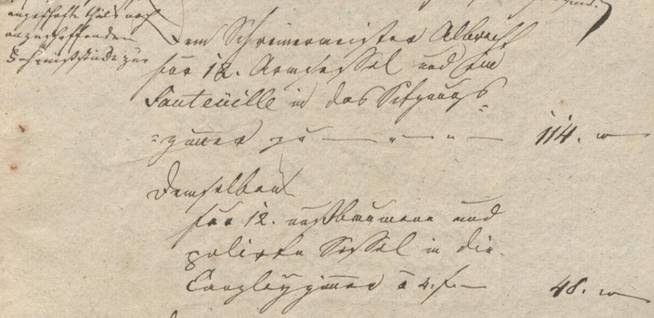 angeschafte theils noch
anzuschaffenden
zur
Dem Schreinermeister Albrecht
für 12. Armsessel und ein
Fauteuille in das Sitzungs=
=zimmer zu — " — " — 114. —
Demselben
für 12. nußbaumene und
polirte Sessel in die
Canzleyzimmer à 4. f. — 48. —